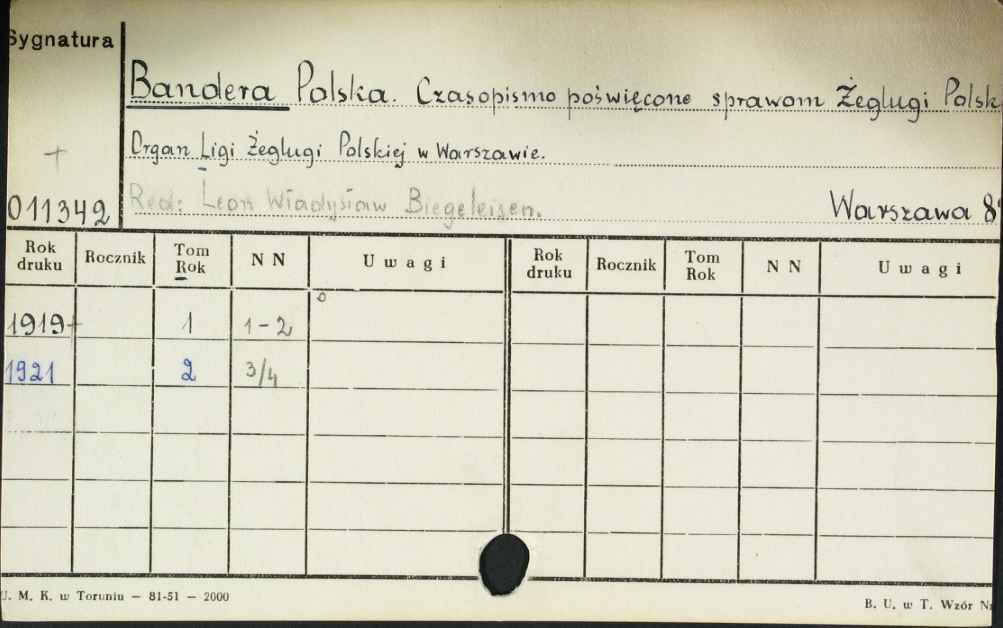 Sygnatura
Bandera Polska. Czasopismo poświęcone sprawom Żeglugi Polsk
+ Organ Ligi Żeglugi Polskiej w Warszawie.
Red: Leon Władysław Biegeleisen.
011342 Warszawa 8°
Rok druku Rocznik Tom Rok N N Uwagi Rok druku Rocznik Tom Rok N N Uwagi
1919+ 1 1-2
1921 2 3/4
U. M. K. w Toruniu — 81-51 — 2000 B. U. w T. Wzór Nr